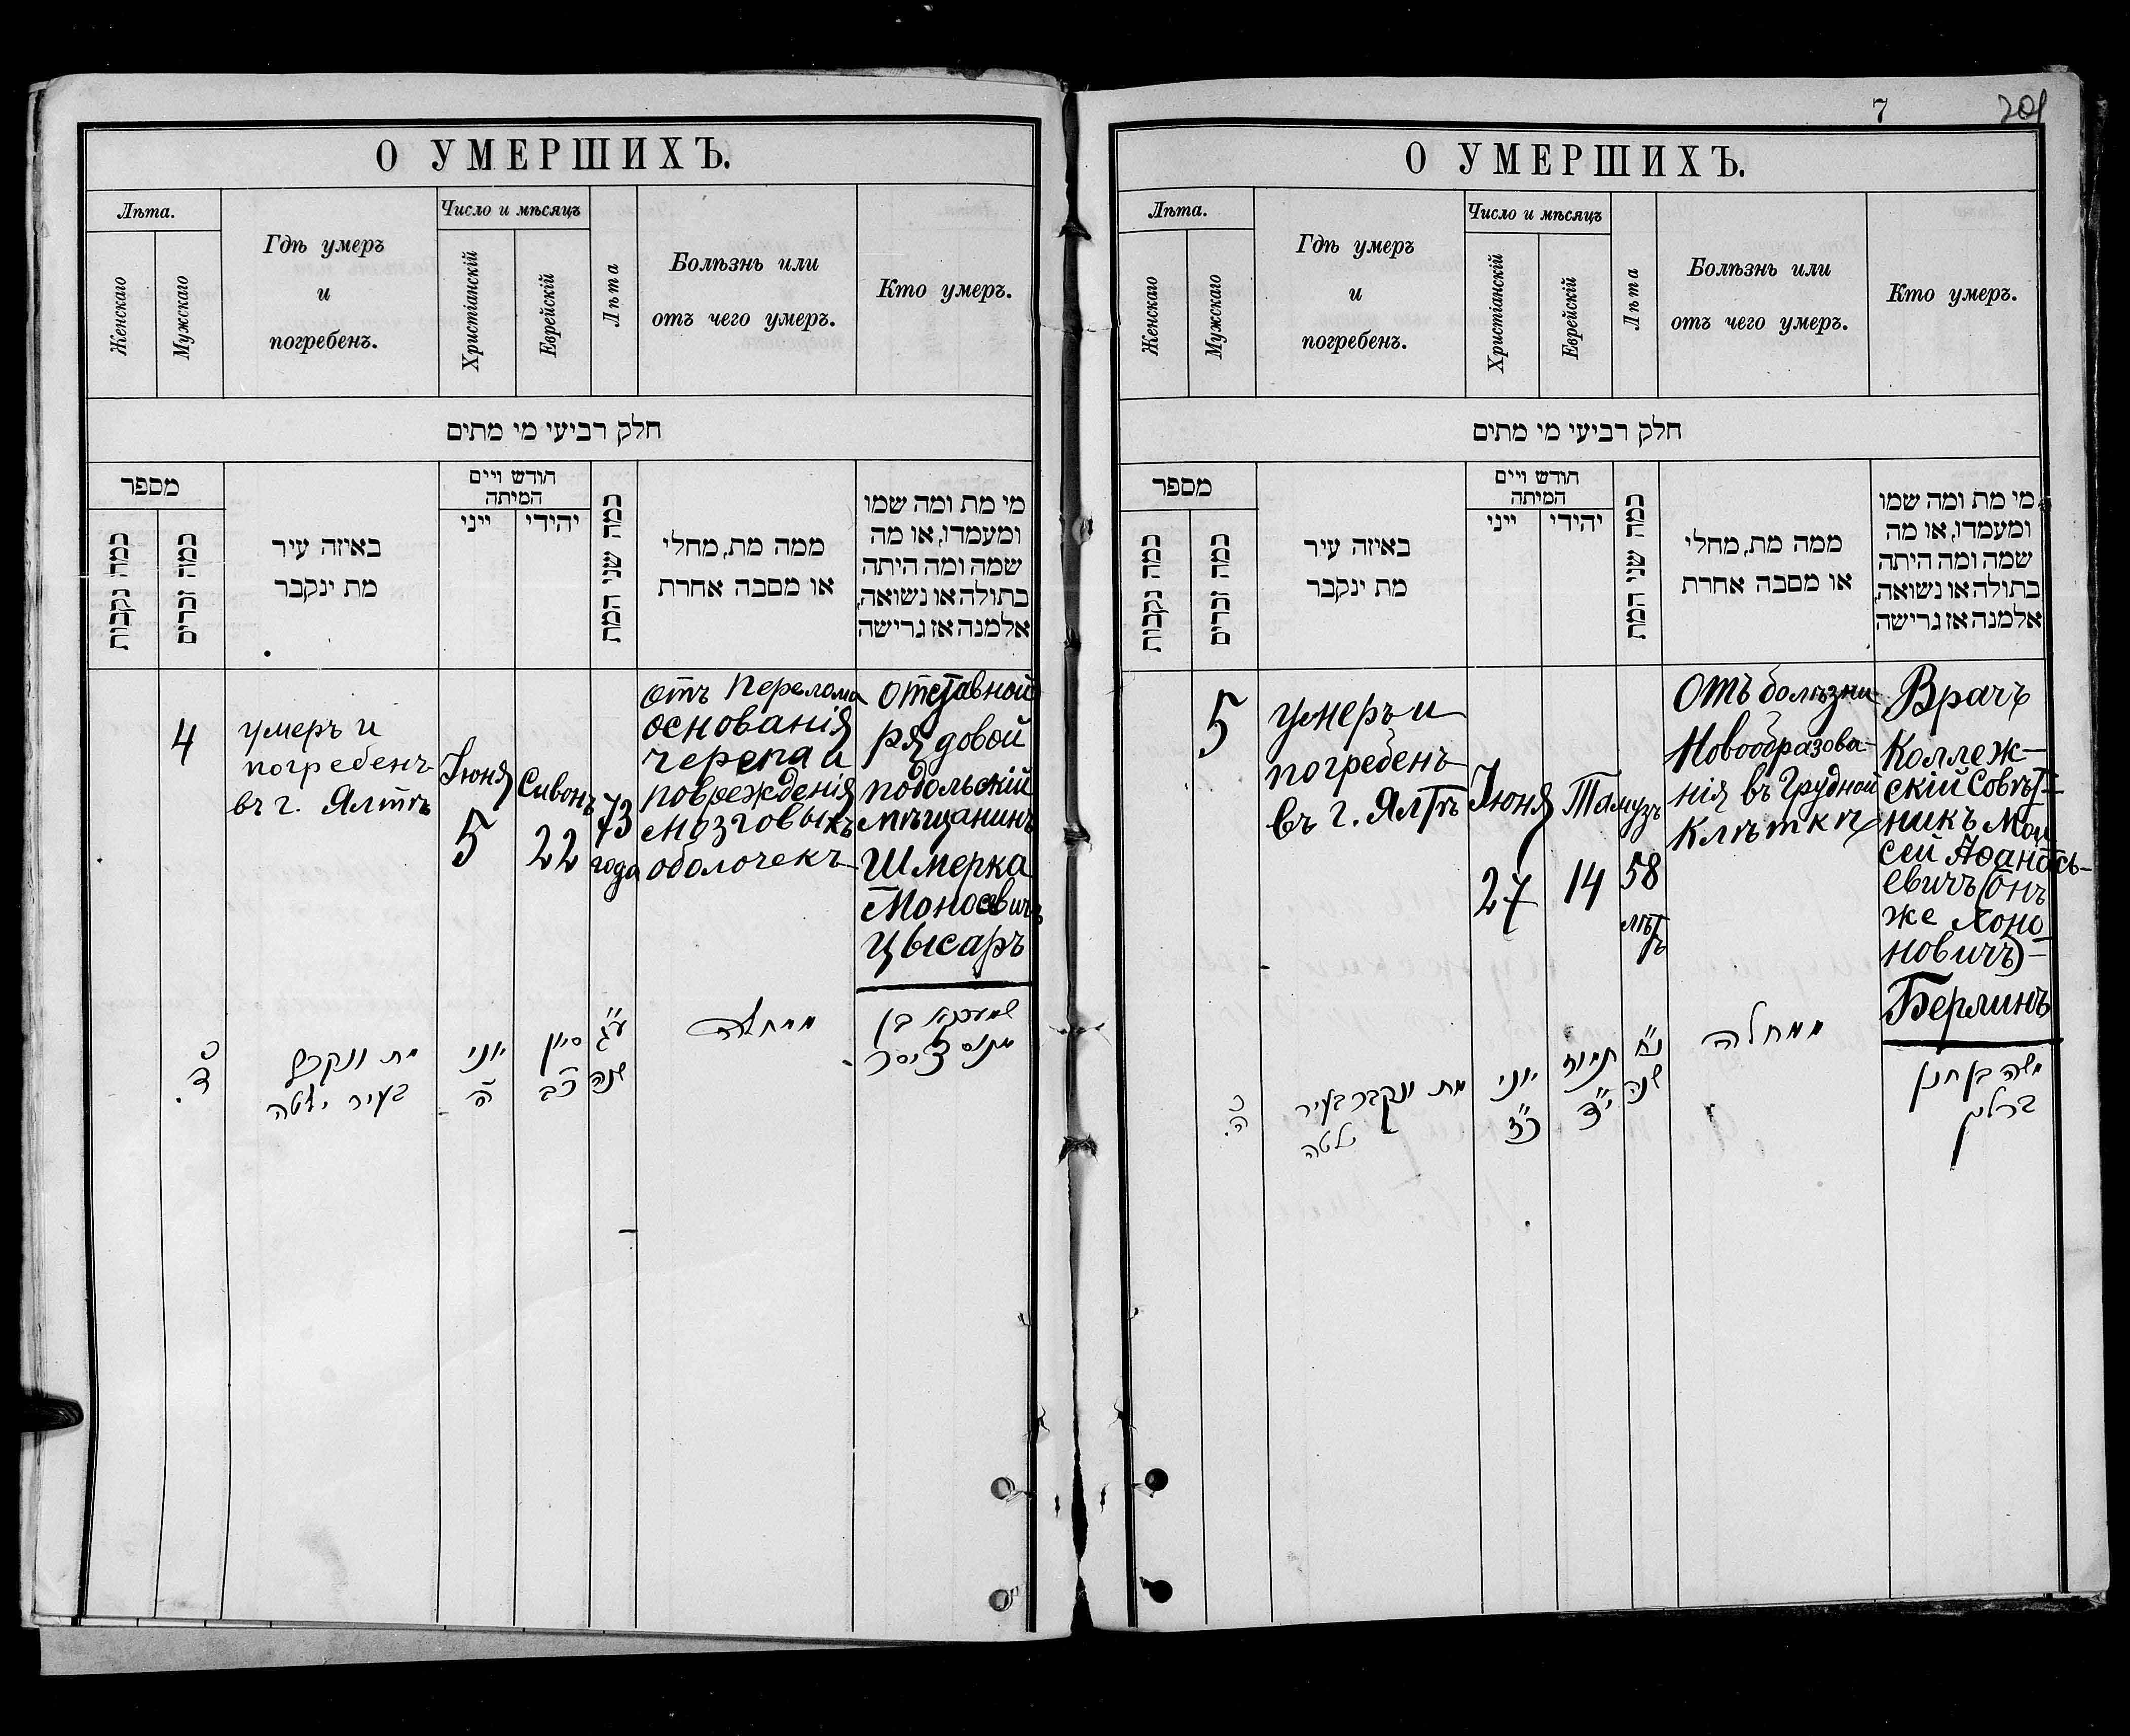 О УМЕРШИХЪ.
Лѣта.
Женскаго
Мужскаго
Гдѣ умеръ
и
погребенъ.
Число и мѣсяцъ
Христіанскій
Еврейскій
Лѣта
Болѣзнь или
отъ чего умеръ.
Кто умеръ.
חלק רביעי מי מתים
מספר
כמה נקבות
כמה זכרים
באיזה עיר
מת ינקבר
חודש ויים
המיתה
ייני
יהידי
כמה שני המת
ממה מת, מחלי
או מסבה אחרת
מי מת ומה שמו
ומעמדו, או מה
שמה ומה היתה
בתולה או נשואה,
אלמנה אז גרישה
4
умеръ и
погребенъ
въ г. Ялтѣ
Іюня
5
Сивонъ
22
73
года
отъ перелома
основанія
черепа и
поврежденія
мозговыхъ
оболочекъ
отставной
рядовой
подольскій
мѣщанинъ
Шмерка
Моносевичъ
Цысаръ
ד.
מת ונקבר
בעיר ילטה
יוני
ה
סיון
כב
ע"ג
שנה
ממחלה
שמערקא בן
מנוס ציסר
7
201
О УМЕРШИХЪ.
Лѣта.
Женскаго
Мужскаго
Гдѣ умеръ
и
погребенъ.
Число и мѣсяцъ
Христіанскій
Еврейскій
Лѣта
Болѣзнь или
отъ чего умеръ.
Кто умеръ.
חלק רביעי מי מתים
מספר
כמה נקבות
כמה זכרים
באיזה עיר
מת ינקבר
חודש ויים
המיתה
ייני
יהידי
כמה שני המת
ממה מת, מחלי
או מסבה אחרת
מי מת ומה שמו
ומעמדו, או מה
שמה ומה היתה
בתולה או נשואה,
אלמנה אז גרישה
5
умеръ и
погребенъ
въ г. Ялтѣ
Іюня
27
Тамузъ
14
58
лѣтъ
Отъ болѣзни
Новообразова-
нія въ Грудной
Клѣткѣ
Врачъ
Коллеж-
скій Совѣт-
никъ Мои
сей Афанась-
евичъ (онъ
же Хоно
новичъ) -
Берлинъ
ה.
מת ונקבר בעיר
ילטה
יוני
כ"ז
תמוז
י"ד
נ"ח
שנה
ממחלה
משה בן חנן
ברלין